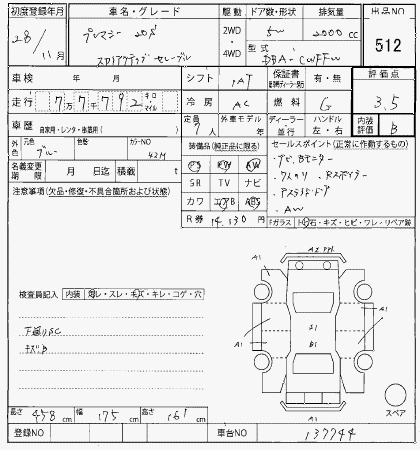 初度登録年月 車名・グレード 駆動 ドア数・形状 排気量 出品NO
28年11月 プレマシー 20S 2WD・4WD 5W 2000cc 512
スカイアクティブ セレーブル 型式 DBA-CWFFW
車検 年 月 シフト IAT 保証書 有・無 評価点
走行 7万7千792 キロ・マイル 冷房 AC 燃料 G 3.5
車歴 自家用・レンタ・換業用( ) 定員 7人 外車モデル 年 ディーラー・並行 ハンドル 左・右 内装評価 B
外色 元色 ブルー 色替 カラーNO 42M 装備品(純正品に限る) セールスポイント(正常に動作するもの)
名義変更期限 月 日迄 積載 t PS PW AW ・ナビ、Bモニター
注意事項(欠品・修復・不具合箇所および状態) SR TV ナビ
カワ エアB ABS
R券 14,130円 ・AW
Fガラス トビ石・キズ・ヒビ・ワレ・リペア跡
A1
A1
検査員記入 内装 ヨゴレ・スレ・キズ・キレ・コゲ・穴
下廻りSC
A1 A1
キズ、B
B1
高さ 458cm 幅 175cm 高さ 161cm A1 スペア
登録NO 車台NO 137744